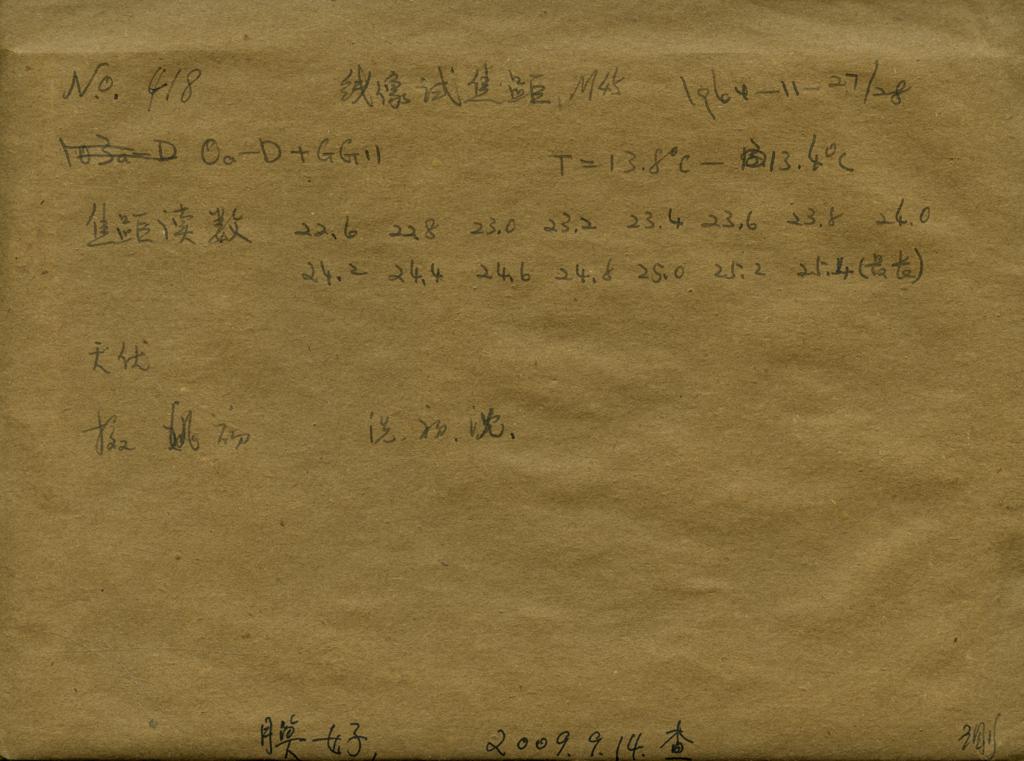 No. 418 线像试焦距, M45 1964-11-27/28
103a-D Oa-D+GG11 T=13.8°C- 13.4°C
焦距读数 22.6 22.8 23.0 23.2 23.4 23.6 23.8 24.0
24.2 24.4 24.6 24.8 25.0 25.2 25.4(最长)
天伏
摄 姚 初 洗. 初. 沈.
膜好, 2009. 9. 14. 查